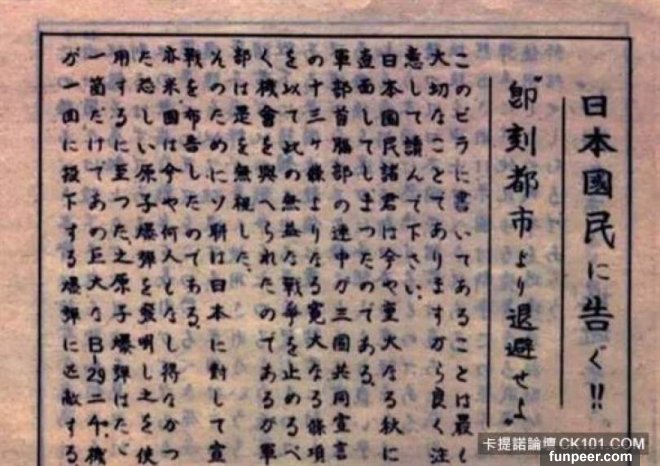 日本國民に告ぐ!!
"即刻都市より退避せよ"
このビラに書いてあることは最も
大切なことでありますから良く注
意して讀んで下さい。
日本國民諸君は今や重大なる秋に
直面してしまつたのである。
軍部首腦部の連中が三國共同宣言
の十三ヶ條よりなる寛大なる條項
を以て此の無益な戰争を止めるべ
く機會を與へられたのであるが軍
部は是を無視した。
そのためにソ聯は日本に對して宣
戰を布告したのである。
亦米國は今や何人もなし得なかつ
た恐しい原子爆彈を發明し之を使
用するに至つた。之原子爆彈はたゞ
一箇だけであの巨大なB-29二千機
が一回に投下する爆彈に匹敵する。
卡提諾論壇 CK101.COM
funpeer.com